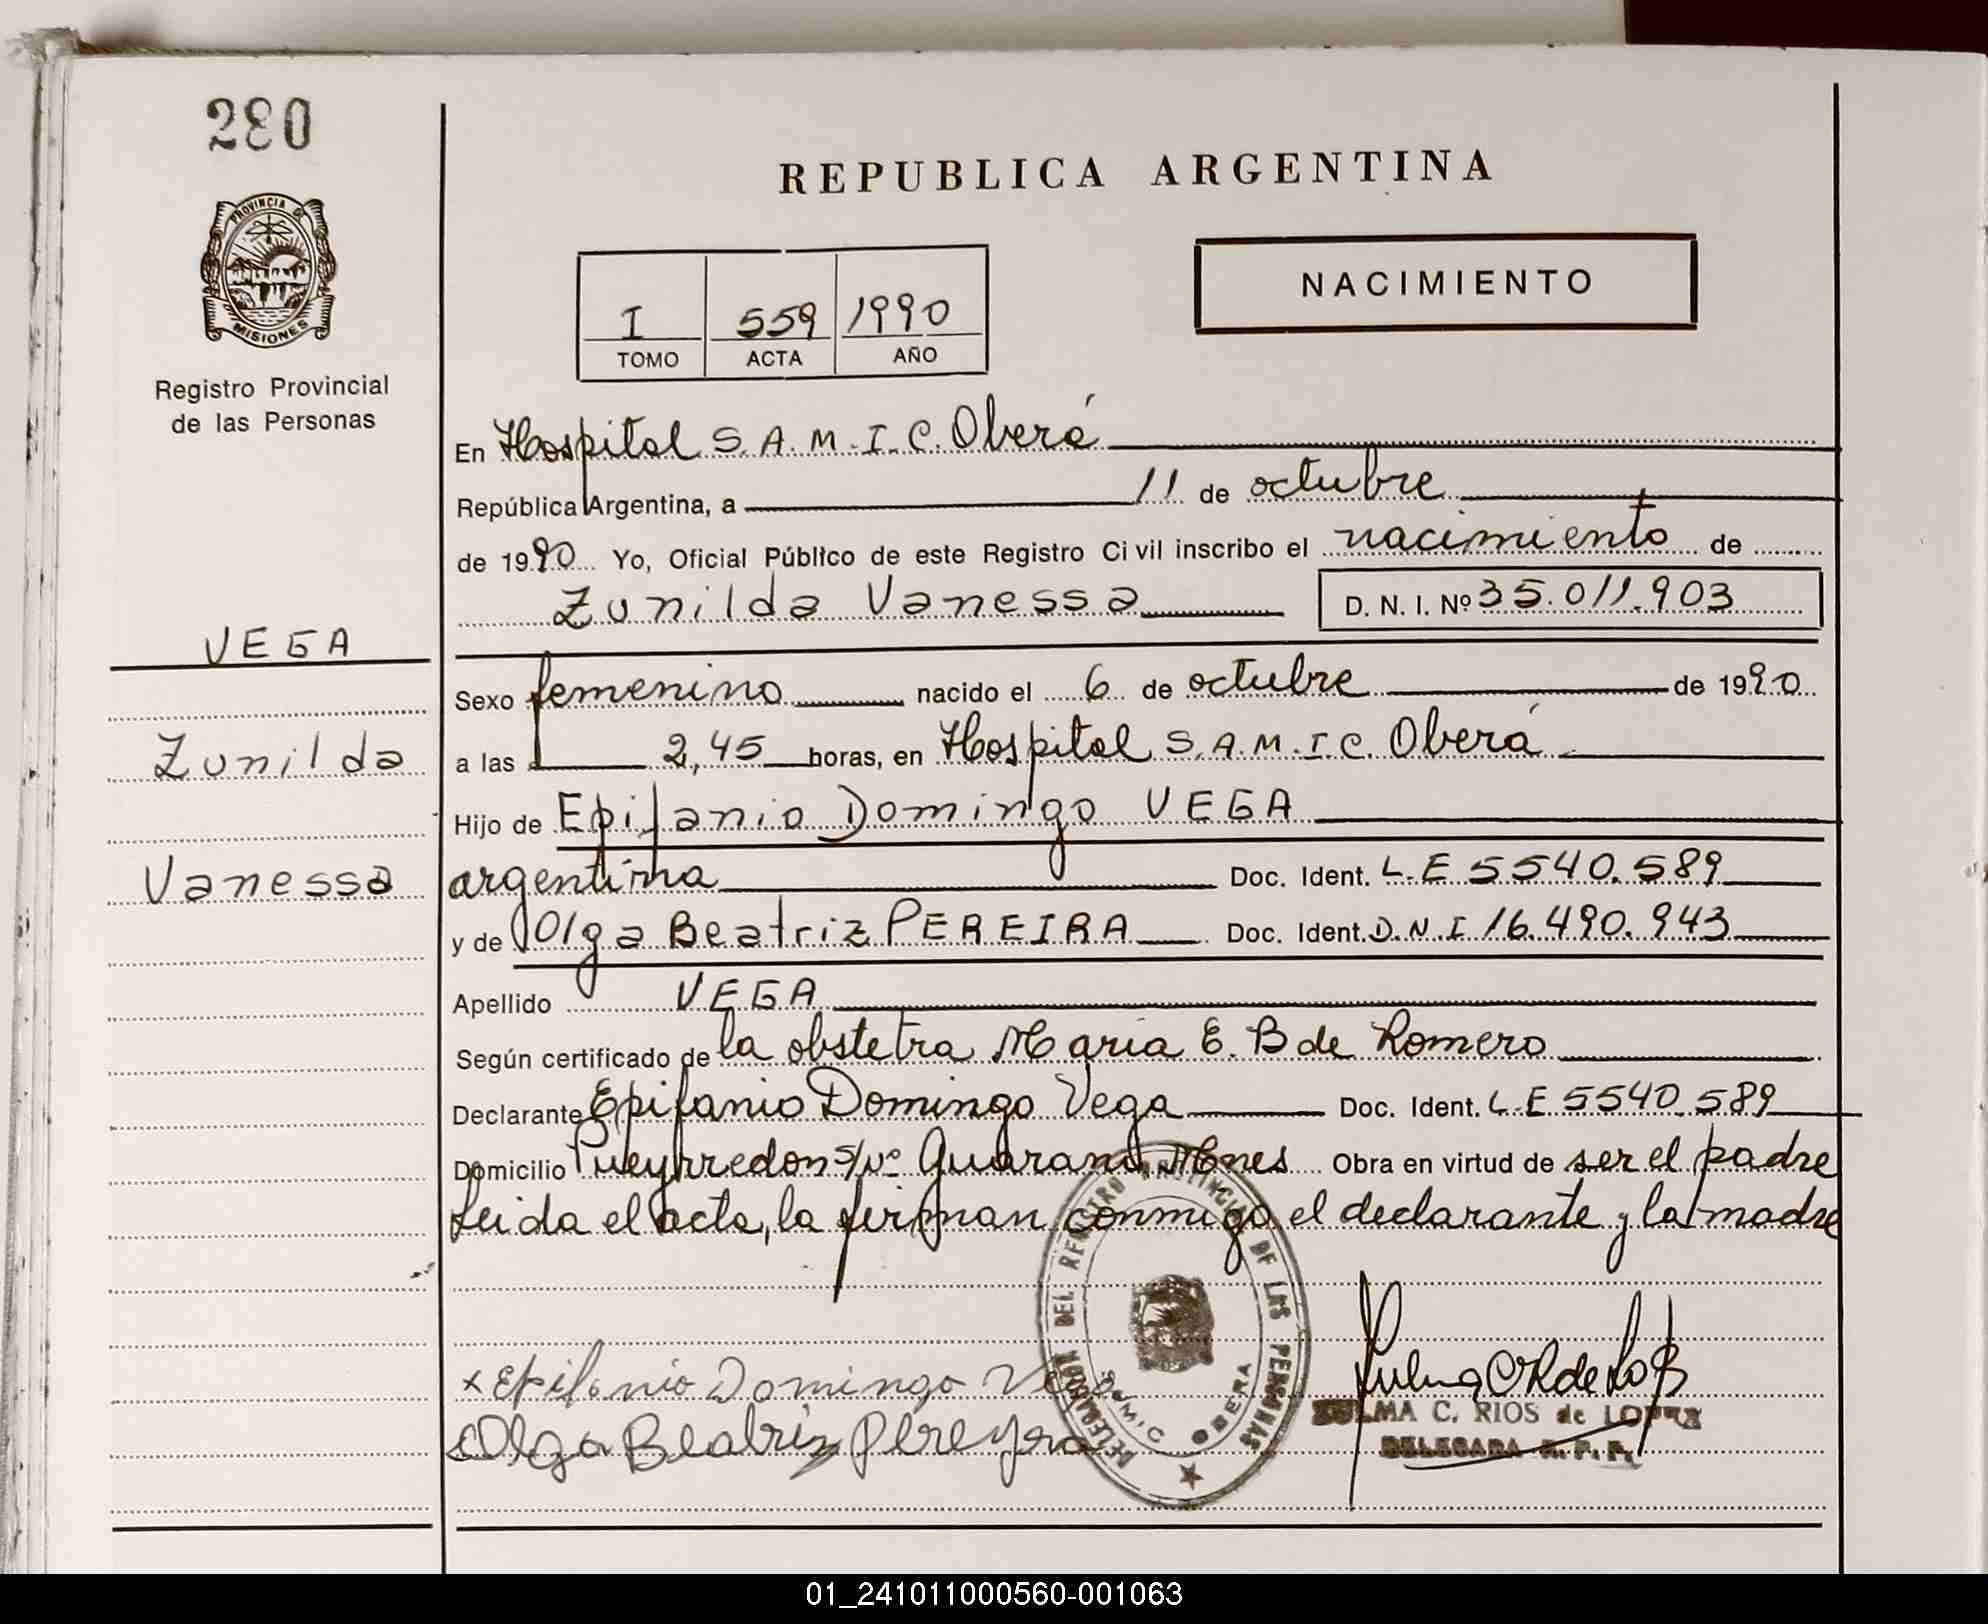 280
REPUBLICA ARGENTINA
PROVINCIA DE
MISIONES
Registro Provincial
de las Personas
I 559 1990
TOMO ACTA AÑO
NACIMIENTO
En Hospital S.A.M.I.C. Oberá
República Argentina, a 11 de octubre
de 1990 Yo, Oficial Público de este Registro Civil inscribo el nacimiento de
Zunilda Vanessa D. N. I. Nº 35.011.903
VEGA
Zunilda
Vanessa
Sexo femenino nacido el 6 de octubre de 1990
a las 2,45 horas, en Hospital S.A.M.I.C. Oberá
Hijo de Epifanio Domingo VEGA
argentina Doc. Ident. L.E 5540.589
y de Olga Beatriz PEREIRA Doc. Ident. D.N.I 16.490.943
Apellido VEGA
Según certificado de la obstetra Maria E. B de Romero
Declarante Epifanio Domingo Vega Doc. Ident. L.E 5540.589
Domicilio Pueyrredon s/nº Guarani Mnes Obra en virtud de ser el padre
Leida el acta, la firman conmigo el declarante y la madre
x Epifanio Domingo
Olga Beatriz Pereyra
DELEGACION DEL REGISTRO PROVINCIAL DE LAS PERSONAS
OBERA
ZULMA C. RIOS de LOPEZ
DELEGADA R. P. P.
01_241011000560-001063